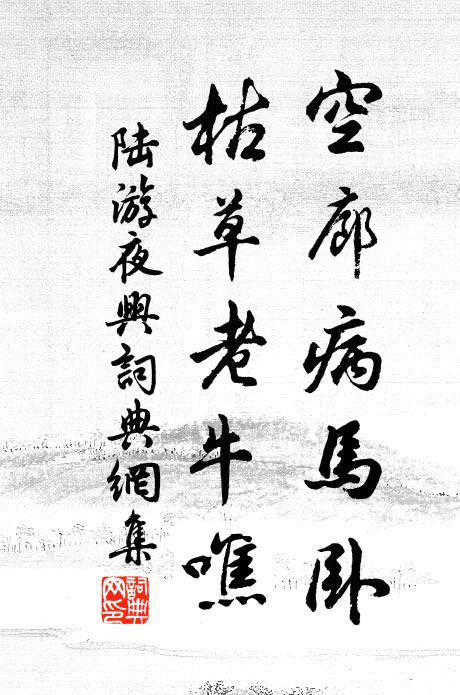 空廊病馬臥
枯草老牛噍
陸游夜興詞典網集
詞典网印